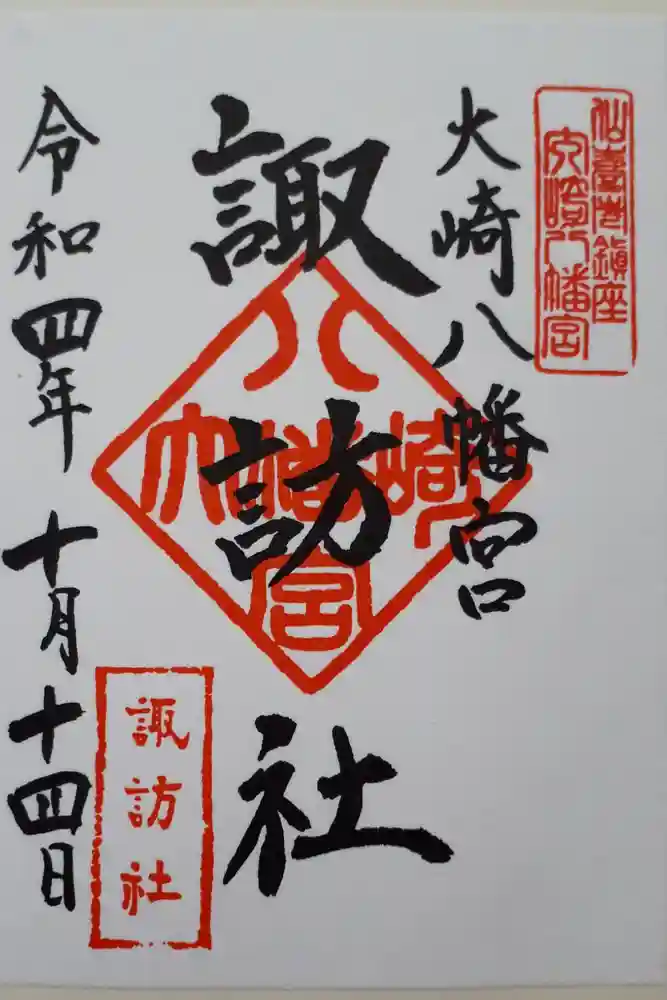 仙臺市鎮座
大崎八幡宮
大崎八幡宮
諏訪社
大崎八幡宮
令和四年 十月十四日
諏訪社